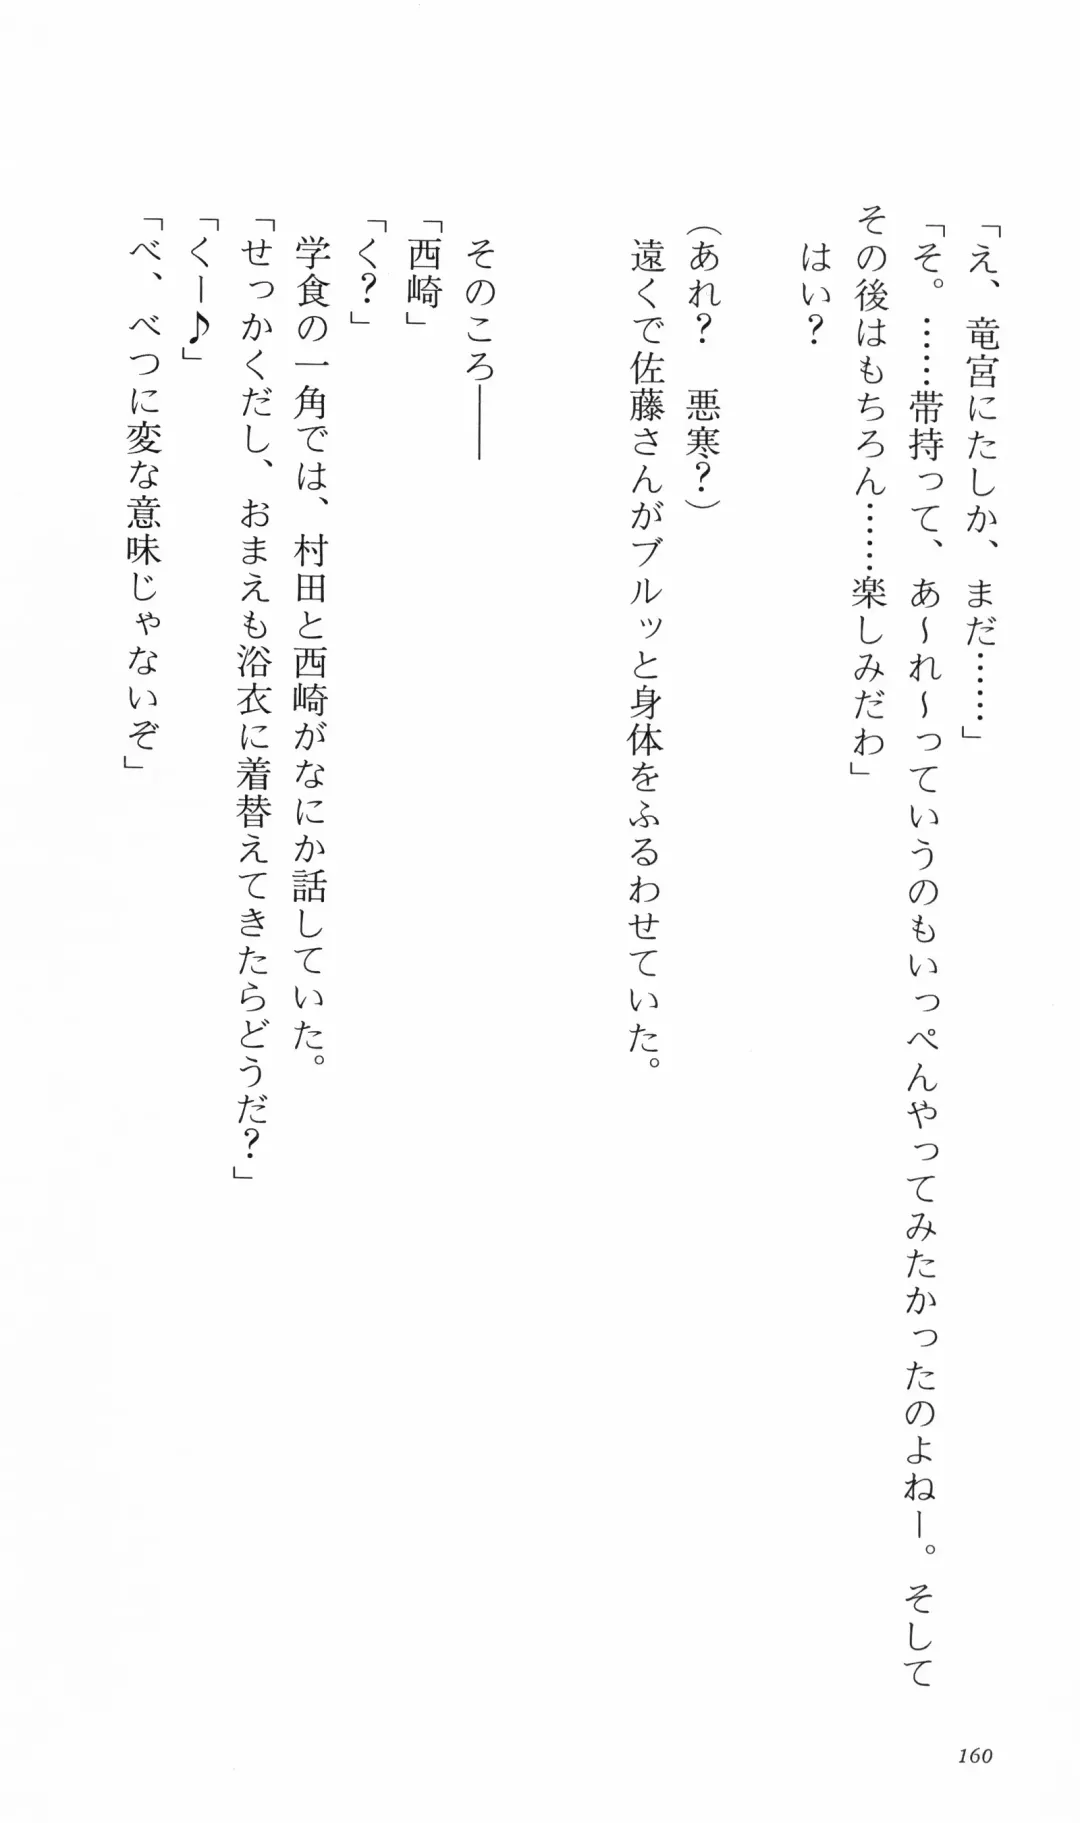 「え、竜宮にたしか、まだ……」
「そ。……帯持って、あ～れ～っていうのもいっぺんやってみたかったのよねー。そして
その後はもちろん……楽しみだわ」
はい？
(あれ？　悪寒？)
遠くで佐藤さんがブルッと身体をふるわせていた。
そのころ――
「西崎」
「く？」
学食の一角では、村田と西崎がなにか話していた。
「せっかくだし、おまえも浴衣に着替えてきたらどうだ？」
「くー♪」
「べ、べつに変な意味じゃないぞ」
160